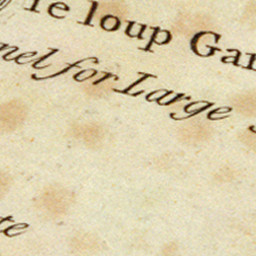 le loup Gar
nel for Large
te